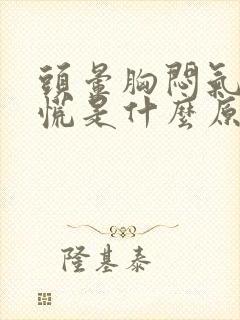 頭暈胸悶氣
慌是什麼原
隆基泰